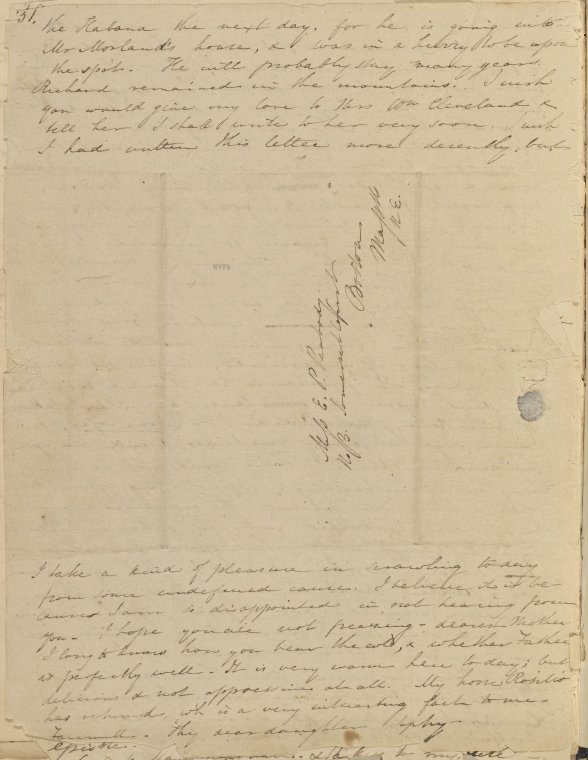 51.
the Habana the next day, for he is going into
Mr Morland's house, & was in a hurry to be upon
the spot. He will probably stay many years.
Richard remained in the mountains. I wish
you would give my love to Mrs Wm Cleveland &
tell her I shall write to her very soon. I wish
I had written this letter more decently, but
Miss E. P. Peabody
No 3. Somerset Court
Boston
Mass
N. E.
NYPL
I take a kind of pleasure in scrawling to day
from some undefined cause. I believe it is be-
cause I am so disappointed in not hearing from
you. I hope you are not freezing - dearest Mother
I long to know how you bear the cold, & whether Father
is perfectly well. It is very warm here to day; but
delicious & not oppressive at all. My horse Rosillo
has returned, wh is a very interesting fact to me.
Farewell. Thy dear daughter Sophy
to my